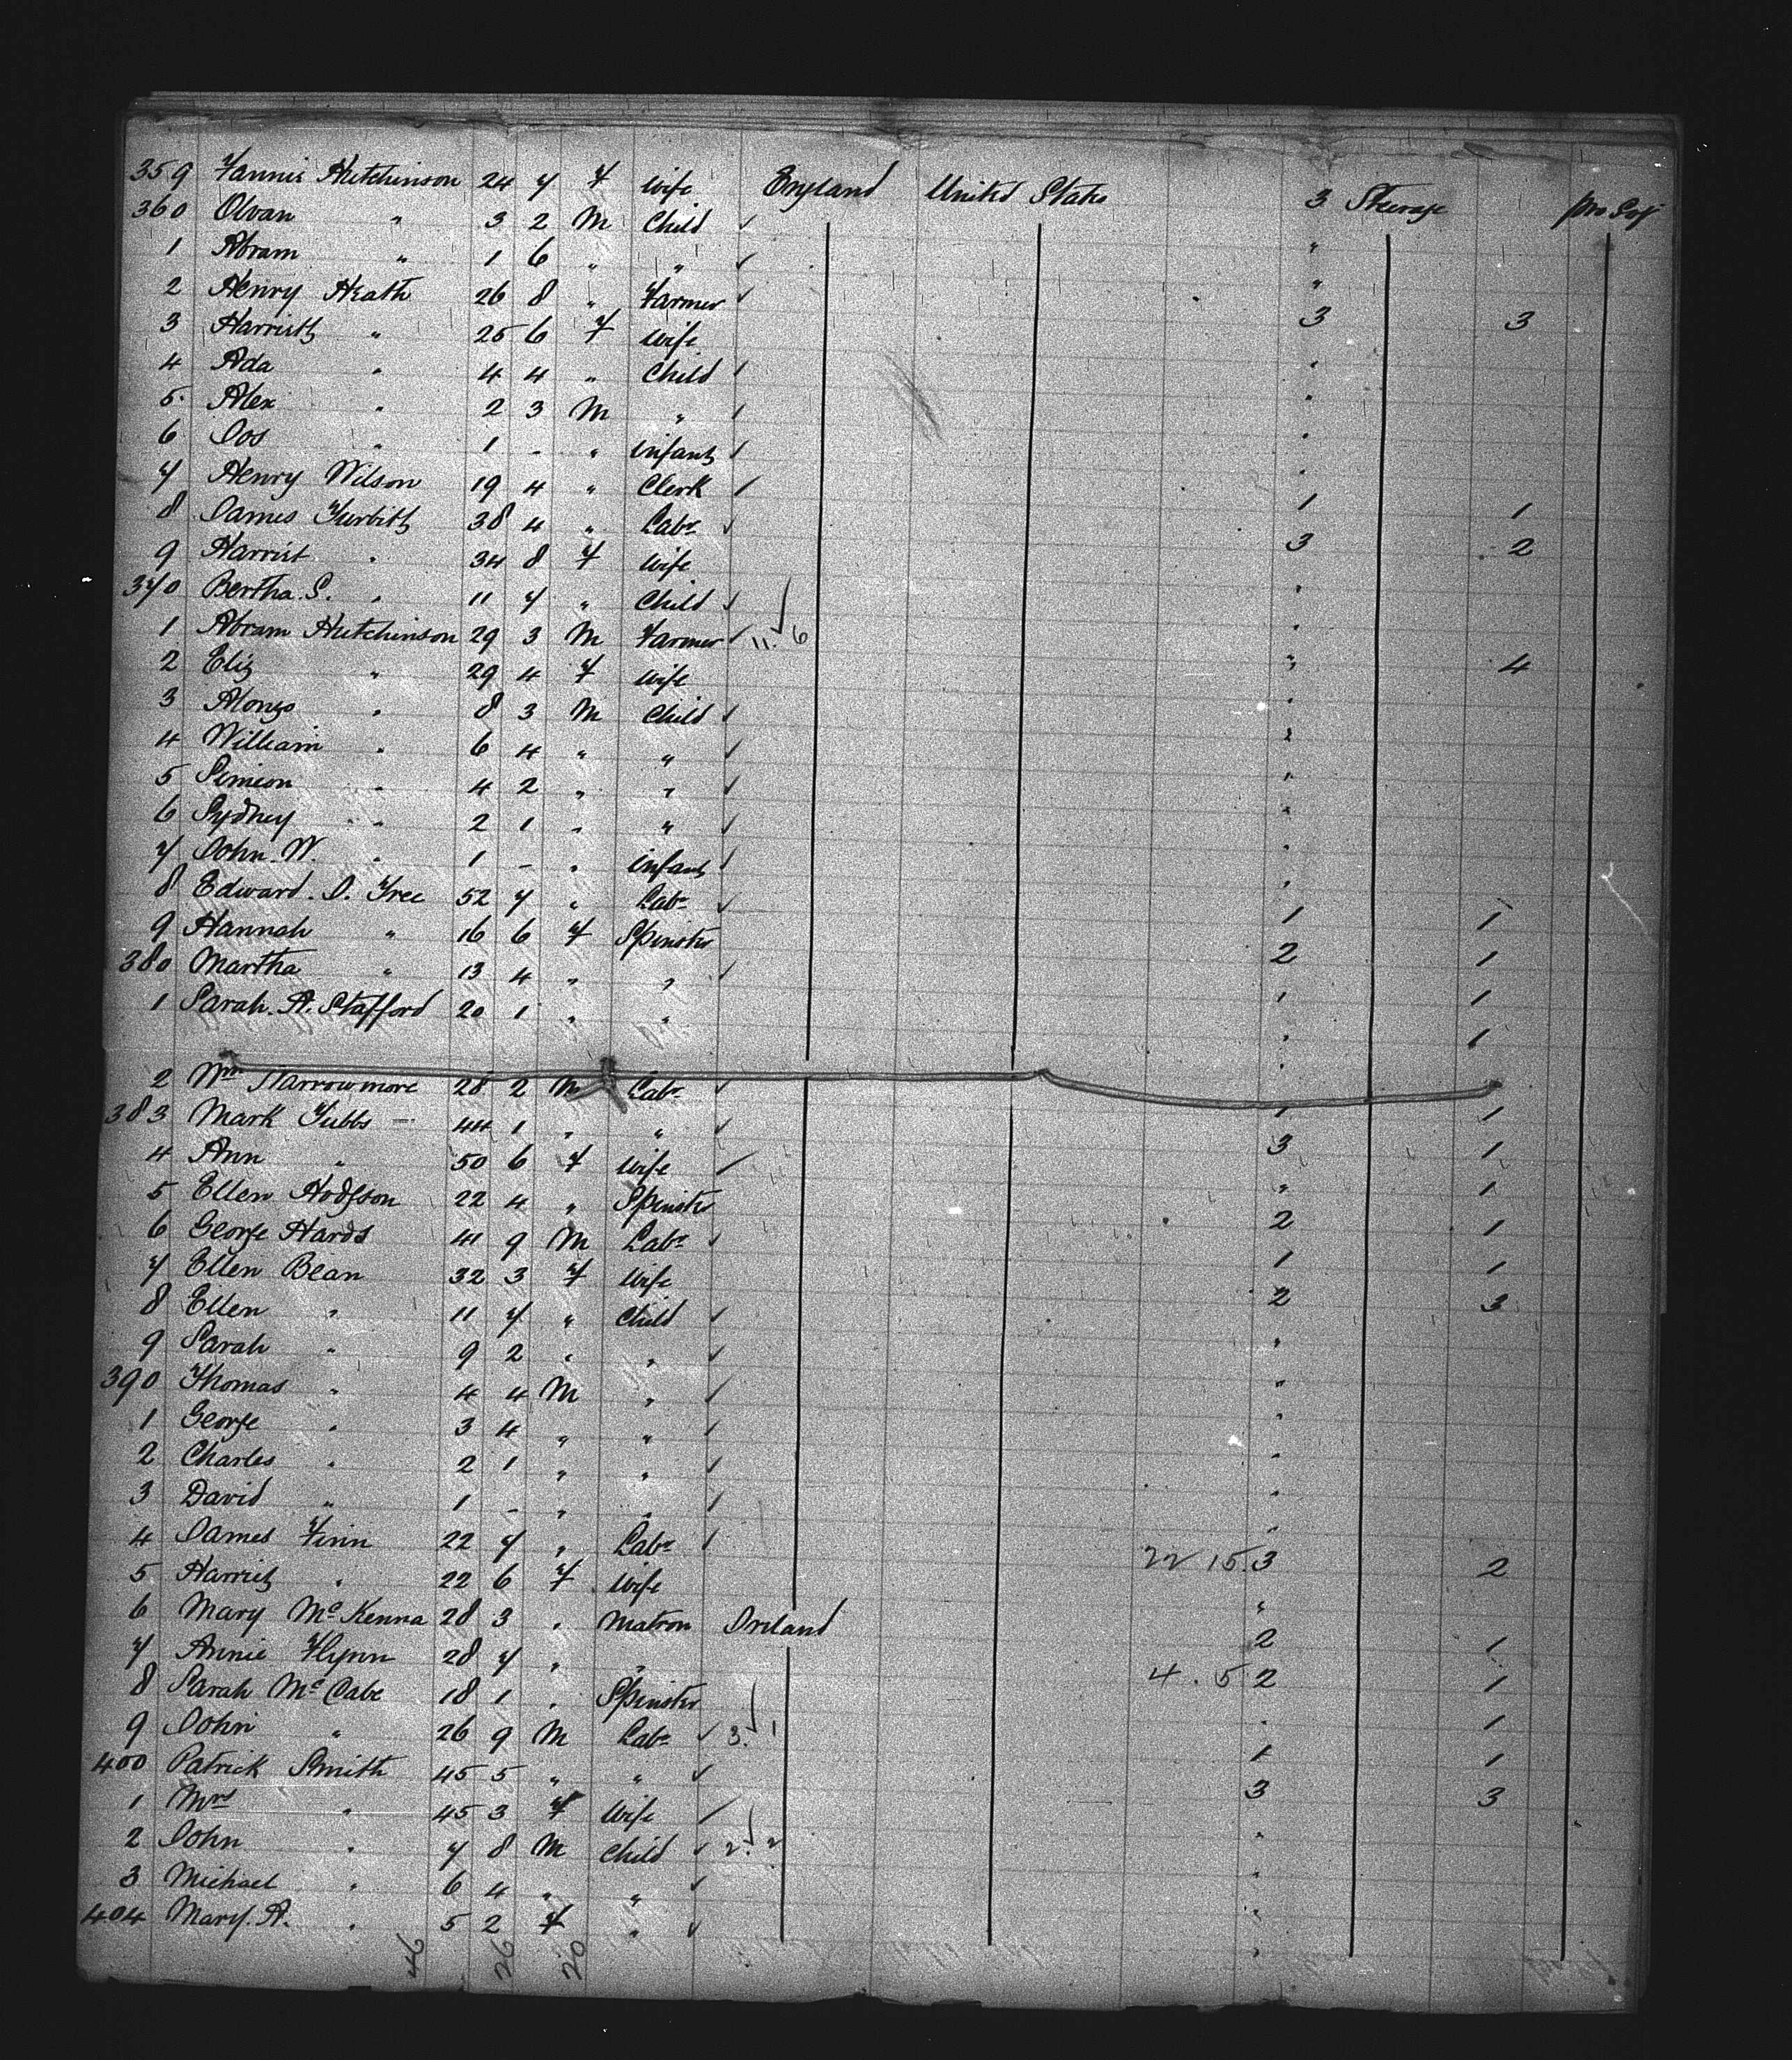 359 Fannie Hutchinson 24 7 F Wife England United States 3 Steerage pro Soj
360 Olvan " 3 2 M Child ✓ "
1 Abram " 1 6 " " ✓ "
2 Henry Heath 26 8 " Farmer ✓ 3 3
3 Harriett " 25 6 F Wife "
4 Ada " 4 4 " Child ✓ "
5 Alex " 2 3 M " ✓ "
6 Jos " 1 - " infant ✓ "
7 Henry Wilson 19 4 " Clerk ✓ 1 1
8 James Turbitt 38 4 " Labr ✓ 3 2
9 Harriet " 34 8 F Wife "
370 Bertha S. " 11 7 " Child ✓ "
1 Abram Hutchinson 29 3 M Farmer ✓ 11. 6 " 4
2 Eliz " 29 4 F Wife "
3 Alonzo " 8 3 M Child ✓ "
4 William " 6 4 " " ✓ "
5 Simeon " 4 2 " " ✓ "
6 Sydney " 2 1 " " ✓ "
7 John W. " 1 - " infant ✓ "
8 Edward J. Tree 52 7 " Labr ✓ 1 1
9 Hannah " 16 6 F Spinster 2 1
380 Martha " 13 4 " " ✓ " 1
1 Sarah A. Stafford 20 1 " " " 1
2 Wm Narrowmore 28 2 M Labr ✓ 1 1
383 Mark Tubbs 44 1 " " ✓ 3 1
4 Ann " 50 6 F Wife ✓ " 1
5 Ellen Hodgson 22 4 " Spinster 2 1
6 George Hards 41 9 M Labr ✓ 1 1
7 Ellen Bean 32 3 F Wife 2 3
8 Ellen " 11 7 " Child ✓ "
9 Sarah " 9 2 " " ✓ "
390 Thomas " 4 4 M " ✓ "
1 George " 3 4 " " ✓ "
2 Charles " 2 1 " " ✓ "
3 David " 1 - " " ✓ "
4 James Finn 22 7 " Labr ✓ 22 15. 3 2
5 Harriet " 22 6 F Wife "
6 Mary McKenna 28 3 " Matron Ireland 2 1
7 Annie Flynn 28 7 " " 4 . 5 2 1
8 Sarah McCabe 18 1 " Spinster " 1
9 John " 26 9 M Labr ✓ 3. 1 1 1
400 Patrick Smith 45 5 " " ✓ 3 3
1 Mrs " 45 3 F Wife ✓ "
2 John " 7 8 M Child ✓ 2. 2 "
3 Michael " 6 4 " " ✓ "
404 Mary A. " 5 2 F " ✓ "
46 26 20